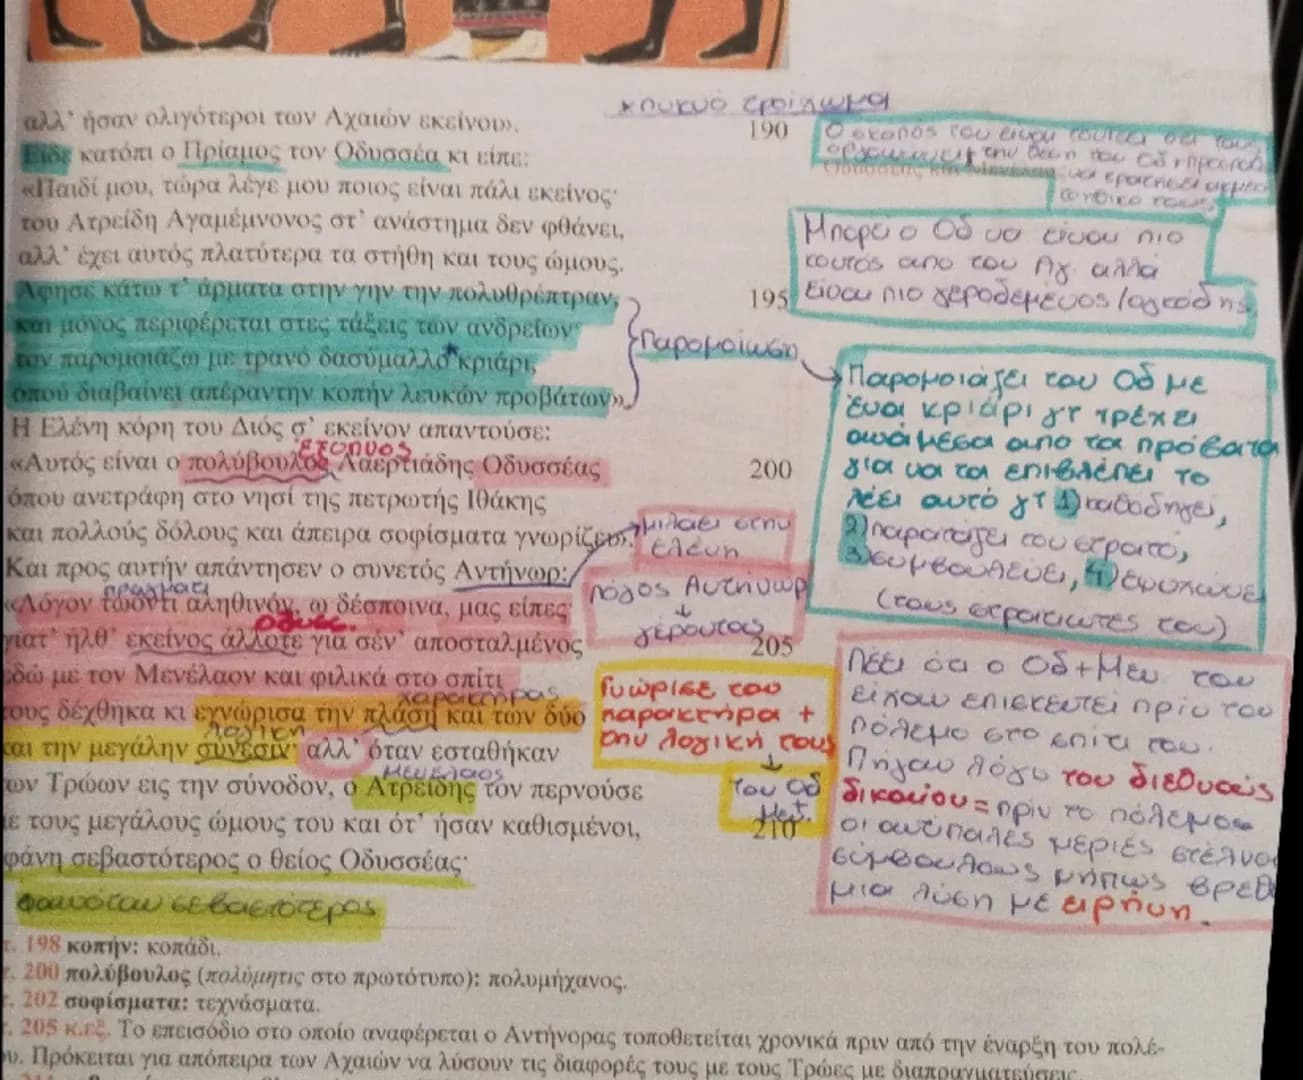 *πυκνό τρίχωμα
αλλ' ήσαν ολιγότεροι των Αχαιών εκείνοι».
190
Είδε κατόπι ο Πρίαμος τον Οδυσσέα κι είπε:
«Παιδί μου, τώρα λέγε μου ποιος είναι πάλι εκείνος·
του Ατρείδη Αγαμέμνονος στ' ανάστημα δεν φθάνει,
αλλ' έχει αυτός πλατύτερα τα στήθη και τους ώμους.
Άφησε κάτω τ' άρματα στην γην την πολυθρέπτραν,
195
και μόνος περιφέρεται στες τάξεις των ανδρείων·
τον παρομοιάζω με τρανό δασύμαλλο* κριάρι,
οπού διαβαίνει απέραντην κοπήν λευκών προβάτων».
Παρομοίωση
Η Ελένη κόρη του Διός σ' εκείνον απαντούσε:
έξυπνος
«Αυτός είναι ο πολύβουλος Λαερτιάδης Οδυσσέας
200
όπου ανετράφη στο νησί της πετρωτής Ιθάκης
και πολλούς δόλους και άπειρα σοφίσματα γνωρίζει».
Και προς αυτήν απάντησεν ο συνετός Αντήνωρ:
πράγματι
«Λόγον τωόντι αληθινόν, ω δέσποινα, μας είπες·
Οδυσ.
γιατ' ήλθ' εκείνος άλλοτε για σέν' αποσταλμένος
205
εδώ με τον Μενέλαον και φιλικά στο σπίτι
χαρακτήρας
τους δέχθηκα κι εγνώρισα την πλάση και των δύο
λογική
και την μεγάλην σύνεσιν· αλλ' όταν εσταθήκαν
Μενέλαος
των Τρώων εις την σύνοδον, ο Ατρείδης τον περνούσε
με τους μεγάλους ώμους του και ότ' ήσαν καθισμένοι,
210
φάνη σεβαστότερος ο θείος Οδυσσέας·
φαινόταν σεβαστότερος
Ο σκοπός του είναι
Μπορεί ο Οδ να είναι πιο
κοντός απο τον Αγ. αλλά
είναι πιο γεροδεμένος/ογκώδης
Παρομοιάζει τον Οδ με
ένα κριάρι γτ τρέχει
ανάμεσα απο τα πρόβατα
για να τα επιβλέπει το
λέει αυτό γτ 1) καθοδηγεί,
2) παρατάζει τον στρατό,
3) συμβουλεύει, 4) εμψυχώνει
(τους στρατιώτες του)
μιλάει στην
Ελένη
Λόγος Αντήνωρ
↓
γέροντας
Γνώρισε τον
χαρακτήρα +
την λογική τους
↓
του Οδ
Μεν.
Λέει ότι ο Οδ+Μεν τον
είχαν επισκεπτεί πριν τον
πόλεμο στο σπίτι του.
Πήγαν λόγω του διεθνούς
δικαίου = πριν το πόλεμο
οι αντίπαλες μεριές στέλνο
σύμβουλους μήπως βρεθ
μια λύση με ειρήνη.
τ. 198 κοπήν: κοπάδι.
τ. 200 πολύβουλος (πολύμητις στο πρωτότυπο): πολυμήχανος.
τ. 202 σοφίσματα: τεχνάσματα.
τ. 205 κ.εξ. Το επεισόδιο στο οποίο αναφέρεται ο Αντήνορας τοποθετείται χρονικά πριν από την έναρξη του πολέ-
ου. Πρόκειται για απόπειρα των Αχαιών να λύσουν τις διαφορές τους με τους Τρώες με διαπραγματεύσεις.